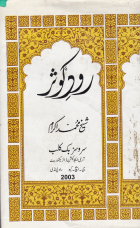 رودِ کوثر
شیخ محمد اکرام
سروسز بک کلب
2003